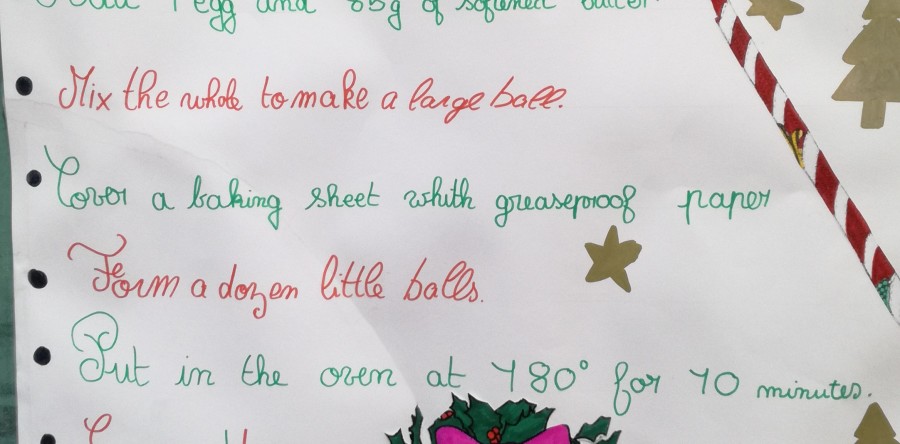 1 egg and 85g of softened butter
Mix the whole to make a large ball.
Cover a baking sheet whith greaseproof paper
Form a dozen little balls.
Put in the oven at 180° for 10 minutes.